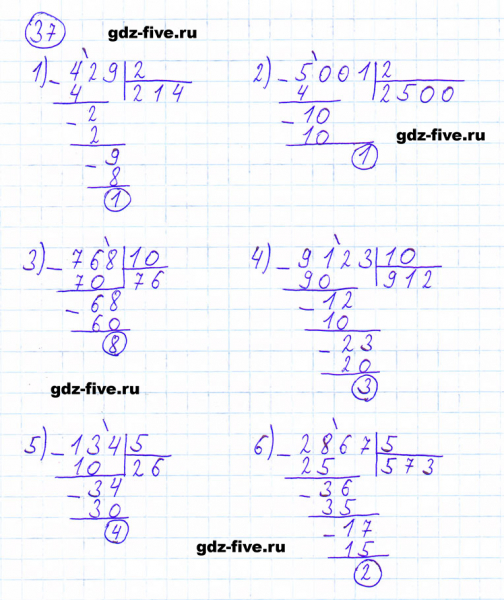 37 gdz-five.ru
1) - 429 | 2
4 | 214
- 2
2
- 9
8
1
2) - 5001 | 2
4 | 2500
- 10
10
1
gdz-five.ru
3) - 768 | 10
70 | 76
- 68
60
8
4) - 9123 | 10
90 | 912
- 12
10
- 23
20
3
gdz-five.ru
5) - 134 | 5
10 | 26
- 34
30
4
6) - 2867 | 5
25 | 573
- 36
35
- 17
15
2
gdz-five.ru